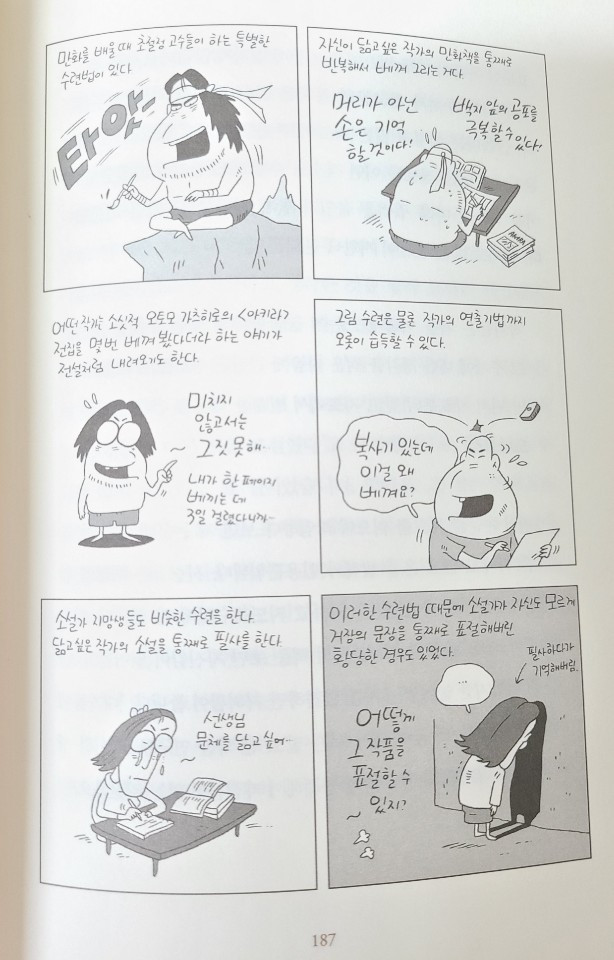 만화를 배울 때 초절정 고수들이 하는 특별한
수련법이 있다.
타앗
자신이 닮고싶은 작가의 만화책을 통째로
반복해서 베껴 그리는 거다.
머리가 아닌
손은 기억
할 것이다!
백지 앞의 공포를
극복할 수 있다!
어떤 작가는 소싯적 오토모 가츠히로의 <아키라>
전집을 몇번 베껴 봤다더라 하는 얘기가
전설처럼 내려오기도 한다.
미치지
않고서는
그짓 못해..
내가 한 페이지
베끼는 데
3일 걸렸다니까~
그림 수련은 물론 작가의 연출기법까지
오롯이 습득할 수 있다.
복사기 있는데
이걸 왜
베껴요?
소설가 지망생들도 비슷한 수련을 한다.
닮고싶은 작가의 소설을 통째로 필사를 한다.
선생님
문체를 닮고 싶어..
이러한 수련법 때문에 소설가가 자신도 모르게
거장의 문장을 통째로 표절해버린
황당한 경우도 있었다.
필사하다가
기억해버림.
어떻게
그 작품을
표절할 수
있지?
187